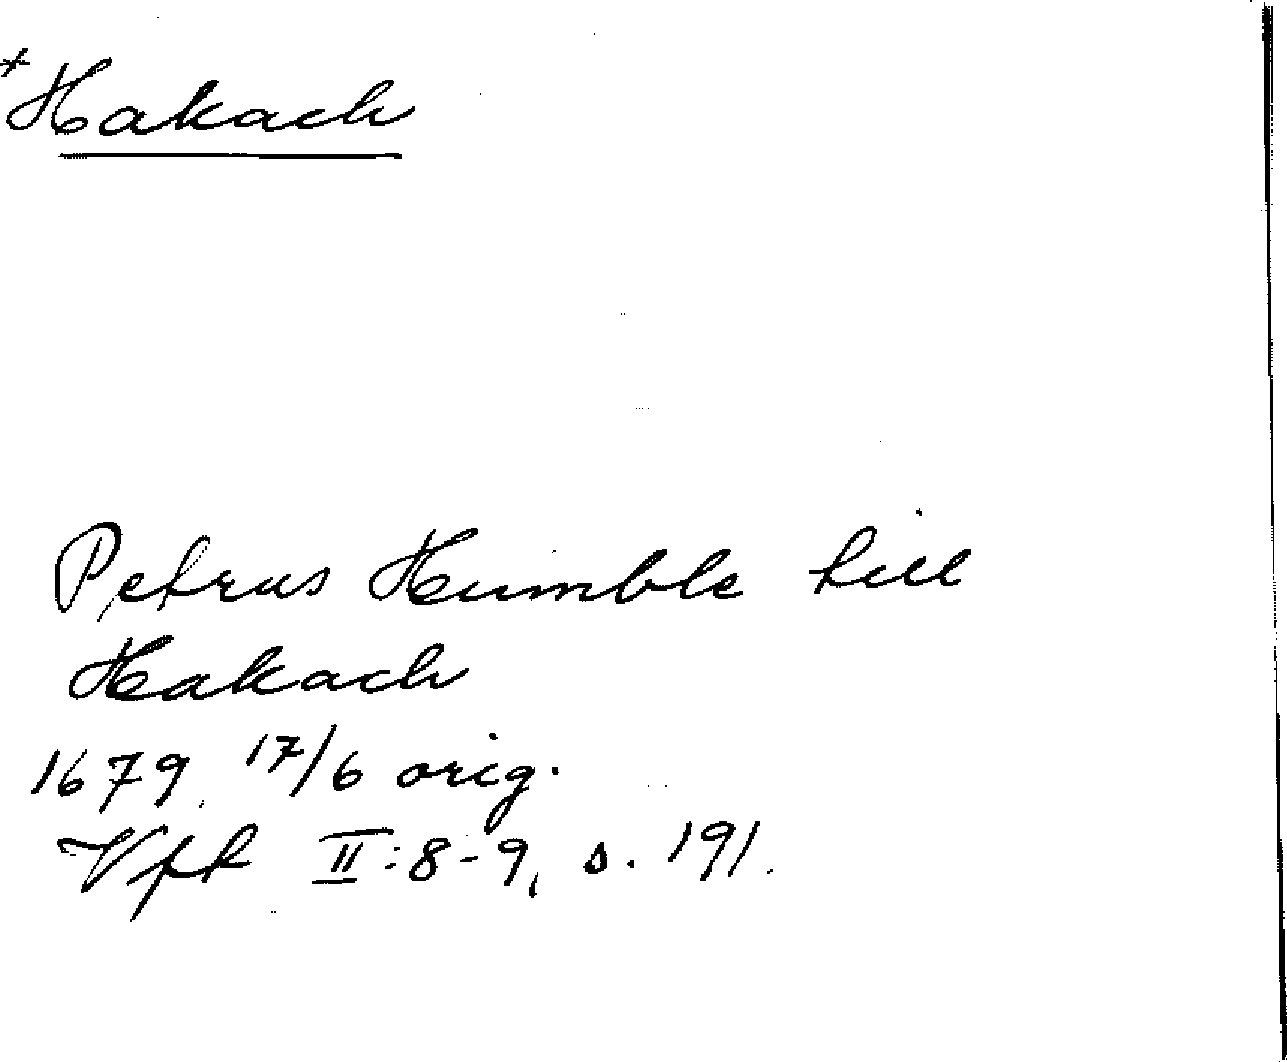 +Hakach
Petrus Humble till
Hakach
1679 17/6 orig.
Vfk II:8-9, s. 191.